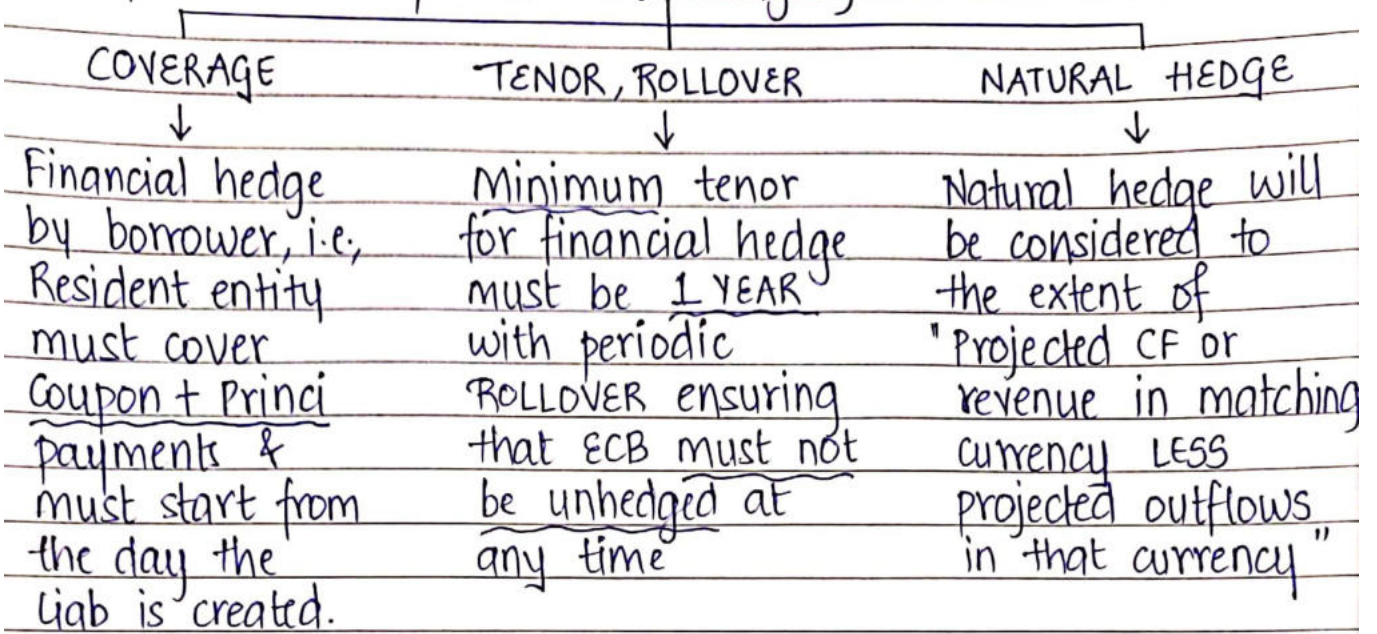 COVERAGE
TENOR, ROLLOVER
NATURAL HEDGE
Financial hedge
by borrower, i.e.,
Resident entity
must cover
Coupon + Princi
payments &
must start from
the day the
Liab is created.
Minimum tenor
for financial hedge
must be 1 YEAR
with periodic
ROLLOVER ensuring
that ECB must not
be unhedged at
any time
Natural hedge will
be considered to
the extent of
"Projected CF or
revenue in matching
currency LESS
projected outflows
in that currency"